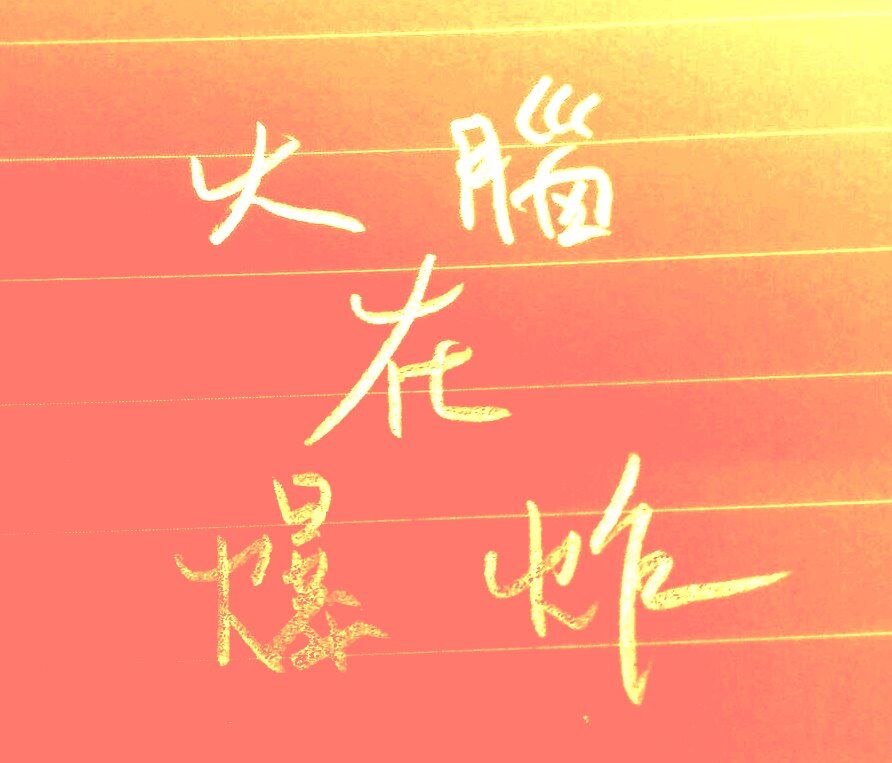 大腦
在
爆炸